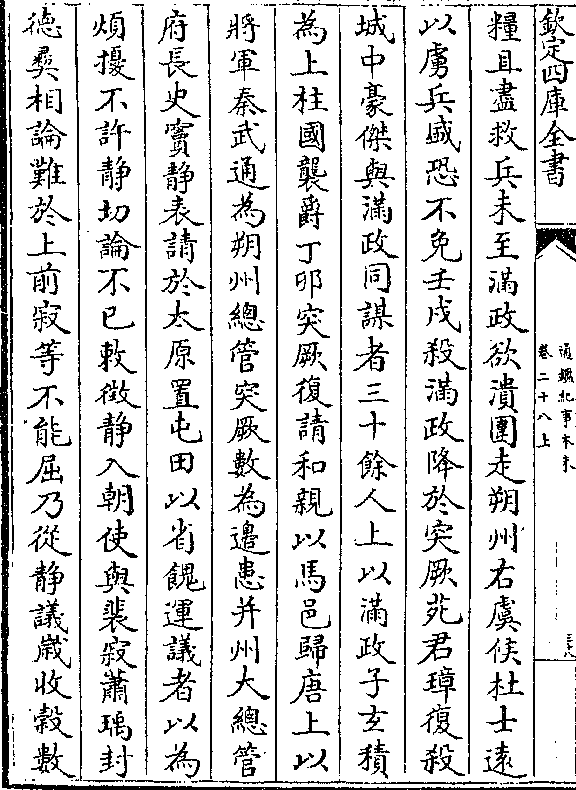 欽定四庫全書
通鑑紀事本末
卷二十八上
糧且盡救兵未至滿政欲潰圍走朔州右虞侯杜士遠
以虜兵盛恐不免壬戌殺滿政降於突厥苑君璋復殺
城中豪傑與滿政同謀者三十餘人上以滿政子玄積
為上柱國襲爵丁卯突厥復請和親以馬邑歸唐上以
將軍秦武通為朔州總管突厥數為邊患并州大總管
府長史竇静表請於太原置屯田以省餽運議者以為
煩擾不許静切論不已敕徵静入朝使與裴寂蕭瑀封
徳彞相論難於上前寂等不能屈乃從静議嵗收穀數